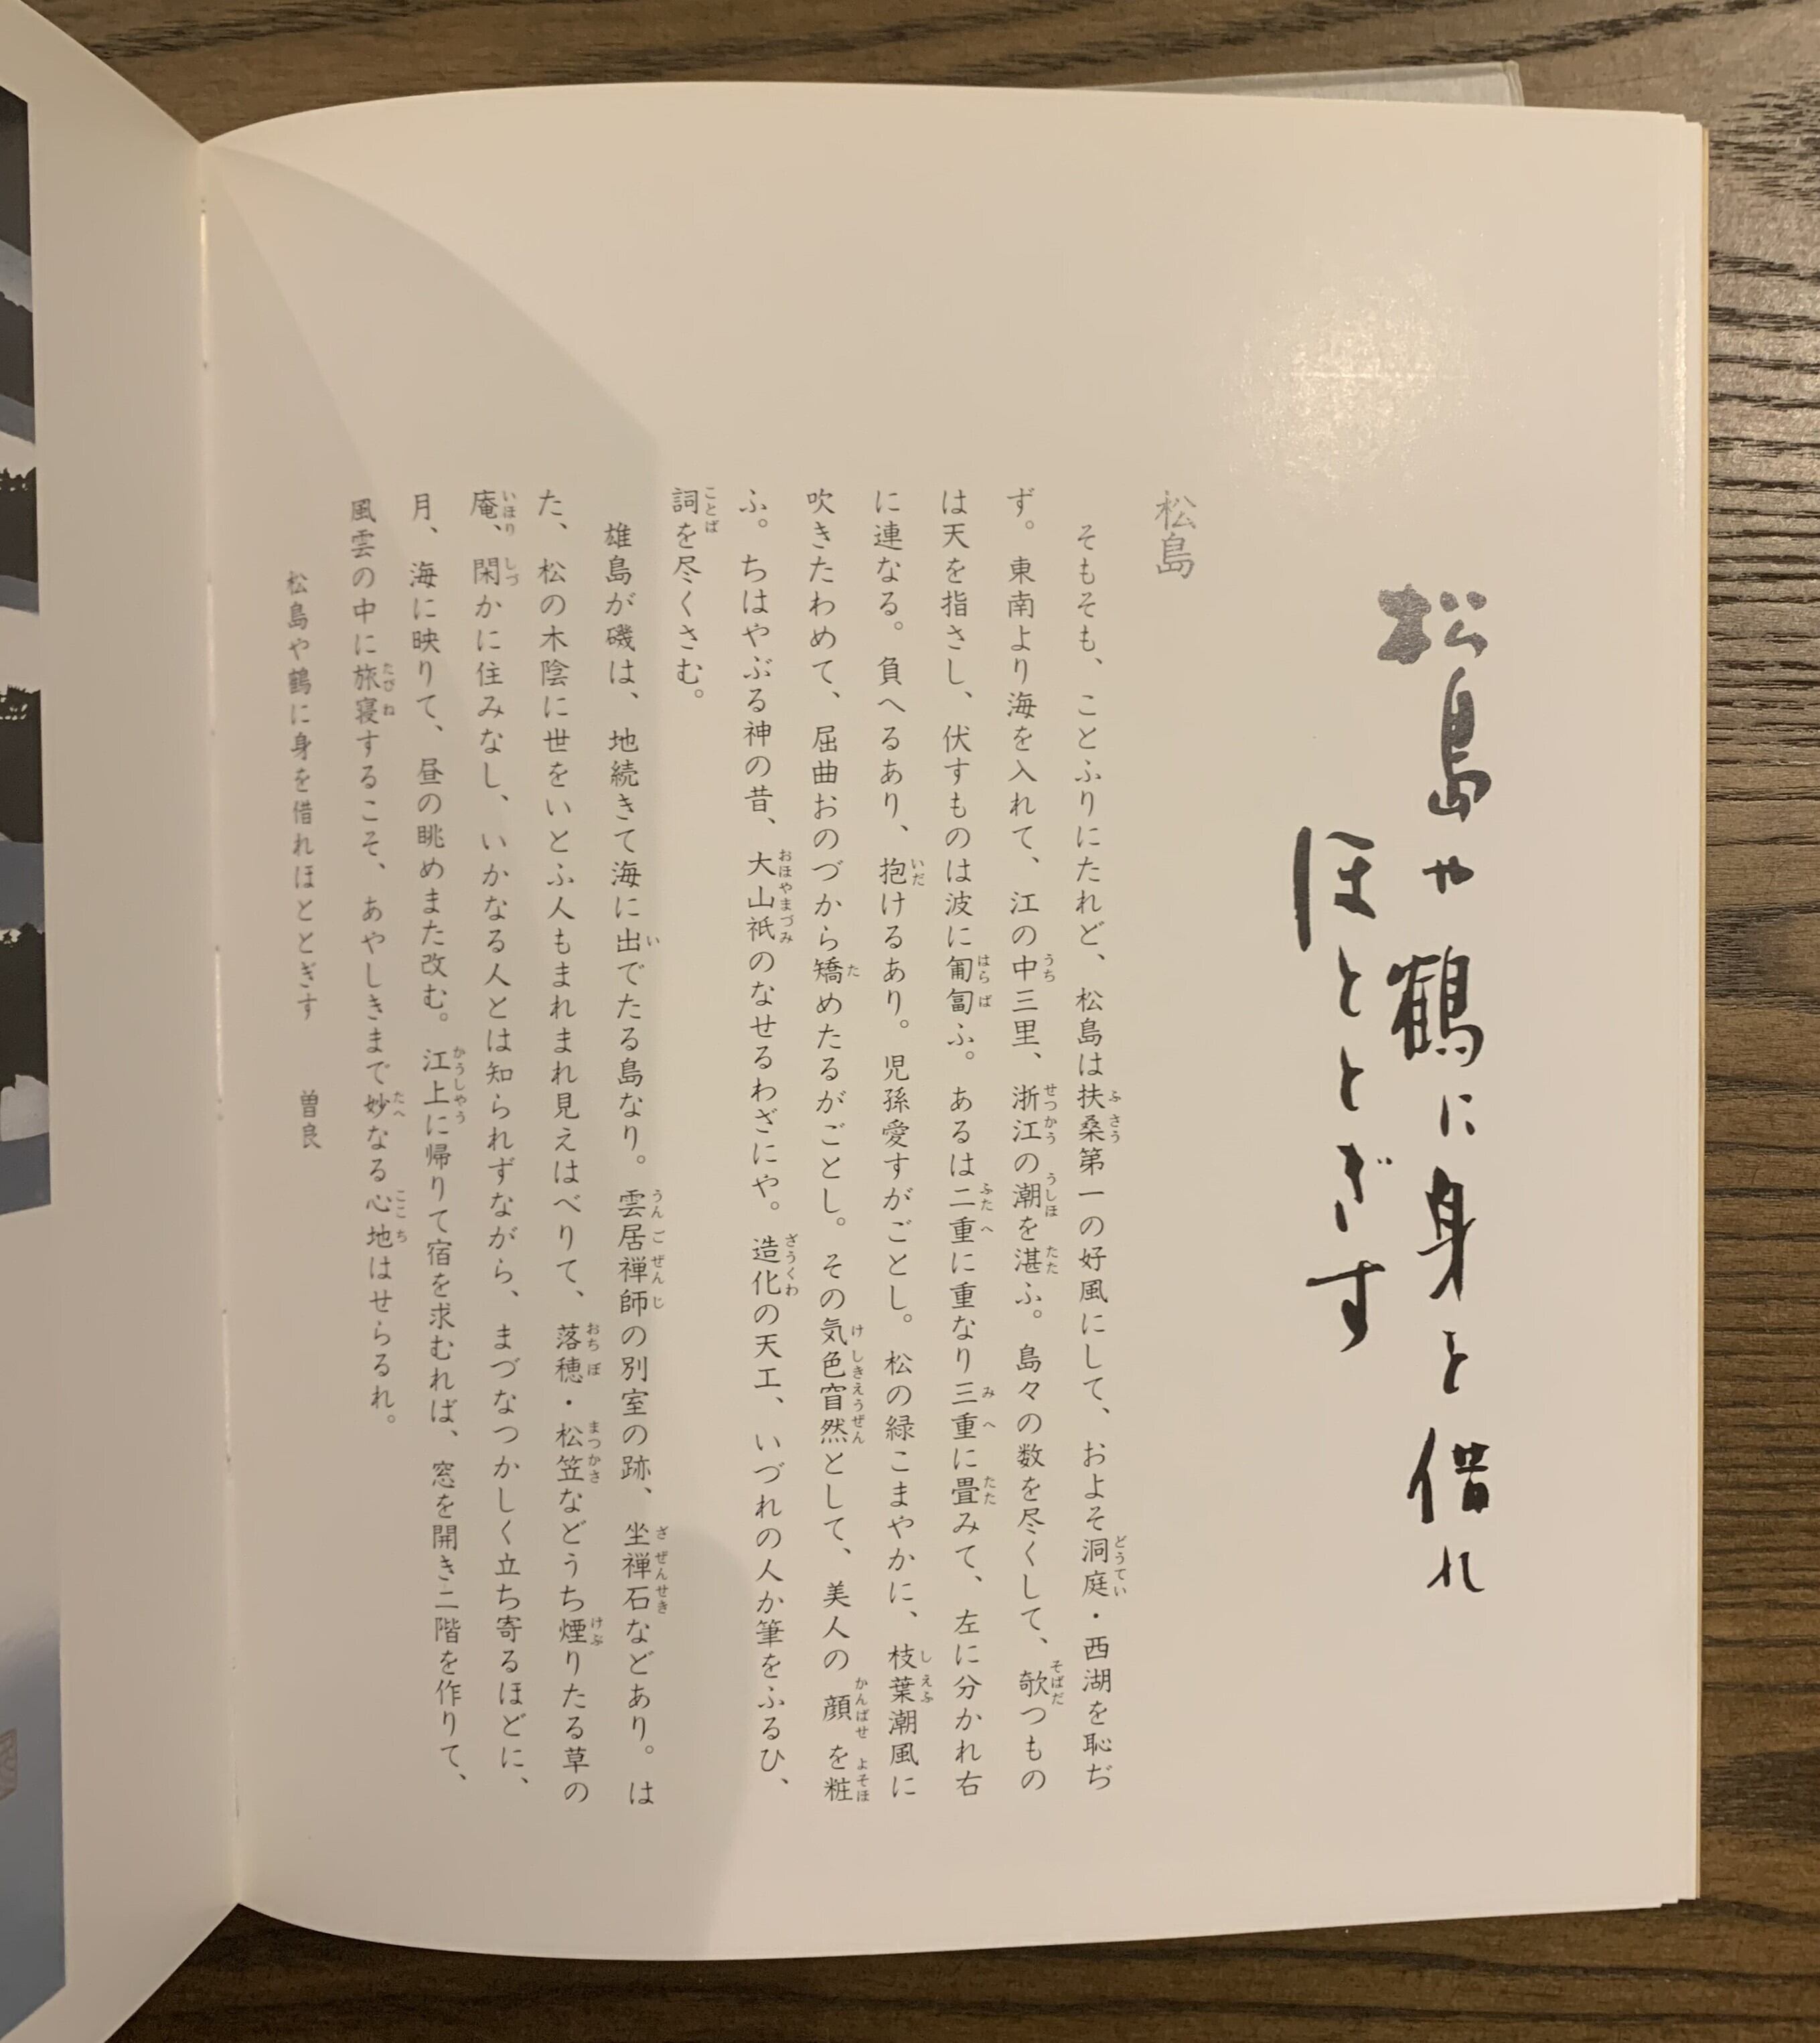 松島や鶴に身を借れ
ほとゝぎす
松島
そもそも、ことふりにたれど、松島は扶桑第一の好風にして、およそ洞庭・西湖を恥ぢ
ず。東南より海を入れて、江の中三里、浙江の潮を湛ふ。島々の数を尽くして、欹つもの
は天を指さし、伏すものは波に匍匐ふ。あるは二重に重なり三重に畳みて、左に分かれ右
に連なる。負へるあり、抱けるあり。児孫愛すがごとし。松の緑こまやかに、枝葉潮風に
吹きたわめて、屈曲おのづから矯めたるがごとし。その気色窅然として、美人の顔を粧
ふ。ちはやぶる神の昔、大山祇のなせるわざにや。造化の天工、いづれの人か筆をふるひ、
詞を尽くさむ。
雄島が磯は、地続きて海に出でたる島なり。雲居禅師の別室の跡、坐禅石などあり。は
た、松の木陰に世をいとふ人もまれまれ見えはべりて、落穂・松笠などうち煙りたる草の
庵、閑かに住みなし、いかなる人とは知られずながら、まづなつかしく立ち寄るほどに、
月、海に映りて、昼の眺めまた改む。江上に帰りて宿を求むれば、窓を開き二階を作りて、
風雲の中に旅寝するこそ、あやしきまで妙なる心地はせらるれ。
松島や鶴に身を借れほととぎす　曽良